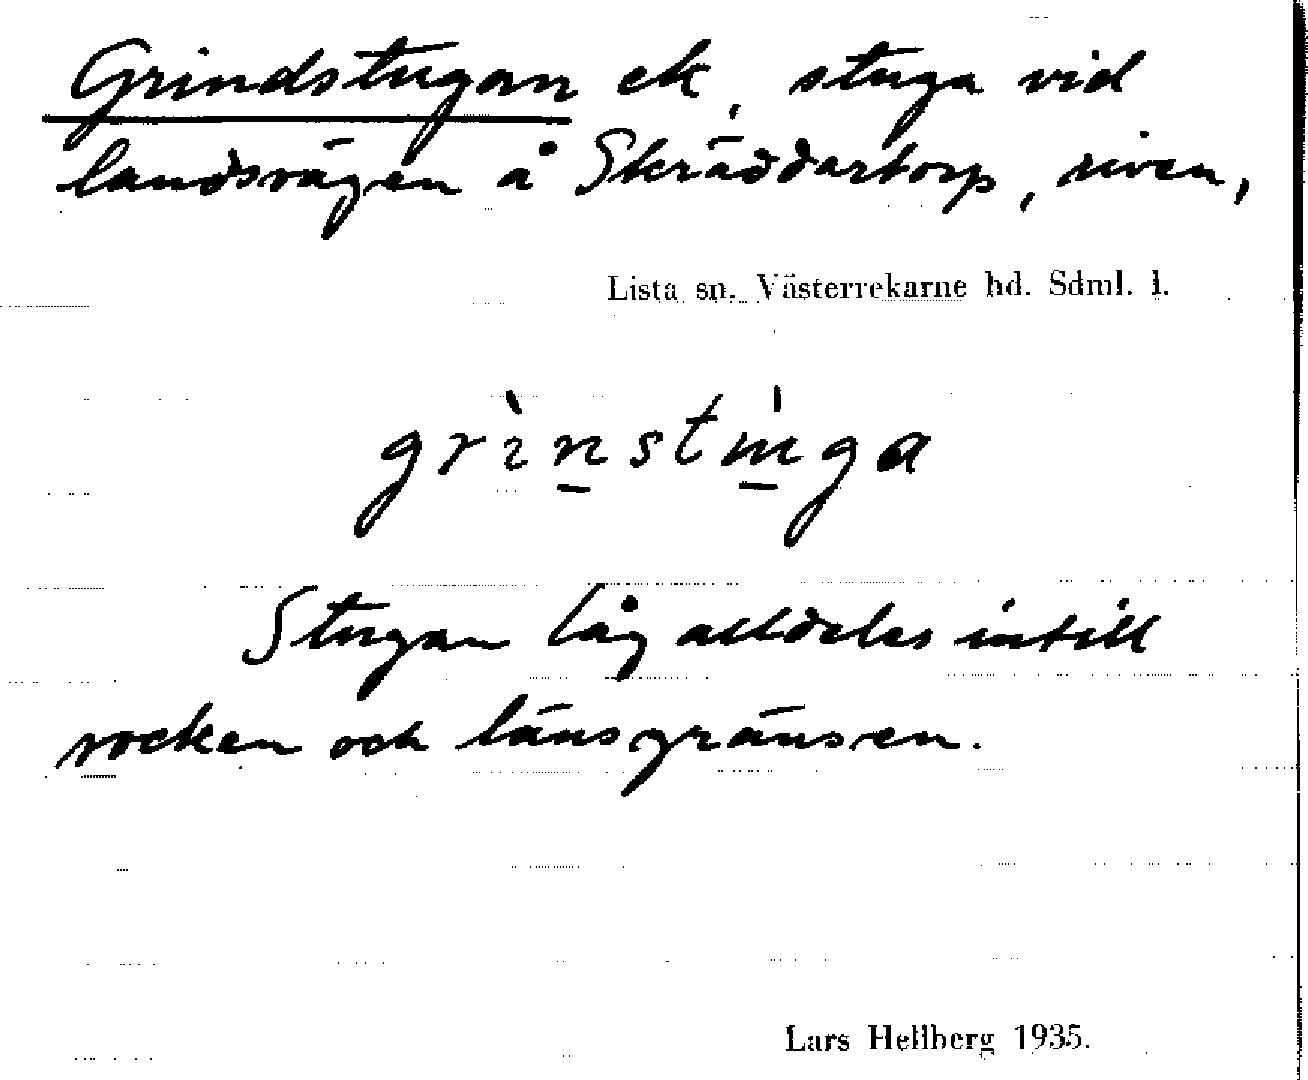 Grindstugan ek, stuga vid
landsvägen å Skräddartorp, riven,
Lista sn. Västerrekarne hd. Sdml. l.
grìnstùga
Stugan låg alldeles intill
socken och länsgränsen.
Lars Hellberg 1935.